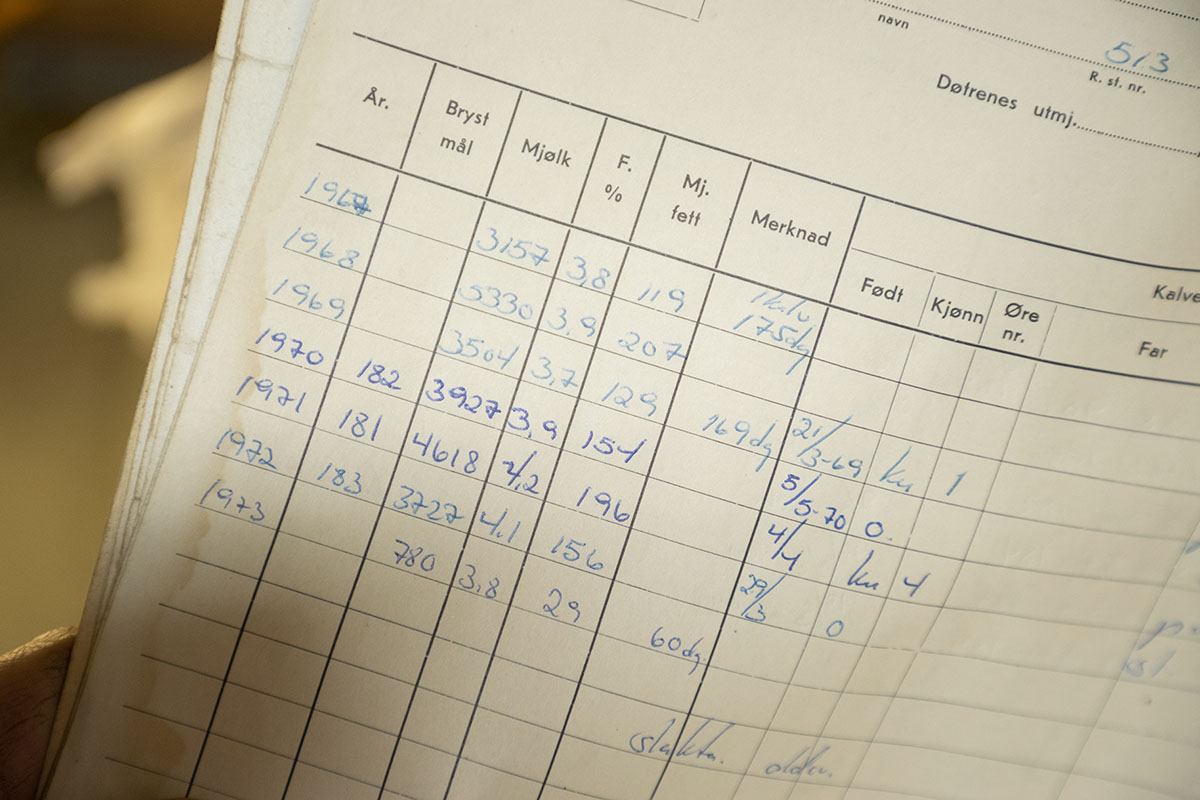 navn
513
R. st. nr.
Døtrenes utmj.
År. Bryst mål Mjølk F. % Mj. fett Merknad
Kalve
Født Kjønn Øre nr. Far
1967 3157 3,8 119 1 kalv
1968 5330 3,9 207 175dg
1969 3504 3,7 129 169dg 21/3-69 ku 1
1970 182 3927 3,9 154 5/5-70 0.
1971 181 4618 4,2 196 4/4 ku 4
1972 183 3727 4,1 156 29/3 0
1973 780 3,8 29 60dg.
slakta.